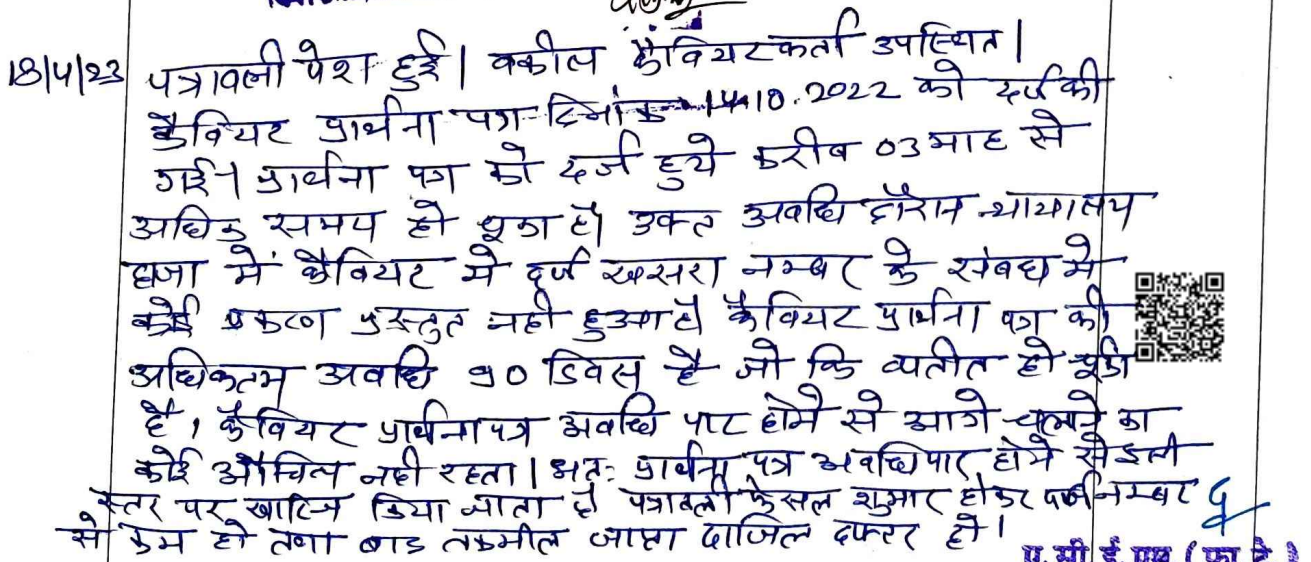 18/4/23 पत्रावली पेश हुई। वकील कैवियटकर्ता उपस्थित।
कैवियट प्रार्थना पत्र दिनांक 14.10.2022 को दर्ज की
गई। प्रार्थना पत्र को दर्ज हुये करीब 03 माह से
अधिक समय हो चूका है। उक्त अवधि दौरान न्यायालय
हाजा में कैवियट में दर्ज खसरा नम्बर के संबध मे
कोई प्रकरण प्रस्तुत नही हुआ है कैवियट प्रार्थना पत्र की
अधिकतम अवधि 90 डिवस है जो कि व्यतीत हो चूकी
है, कैवियट प्रार्थना पत्र अवधि पार होने से आगे चलाने का
कोई औचित्य नही रहता। अतः प्रार्थना पत्र अवधि पार होने से इसी
स्तर पर खारिज किया जाता है पत्रावली फैसल शुमार होकर दर्ज नम्बर
से कम हो तथा बाद तकमील जाप्ता दाखिल दफ्तर हो।